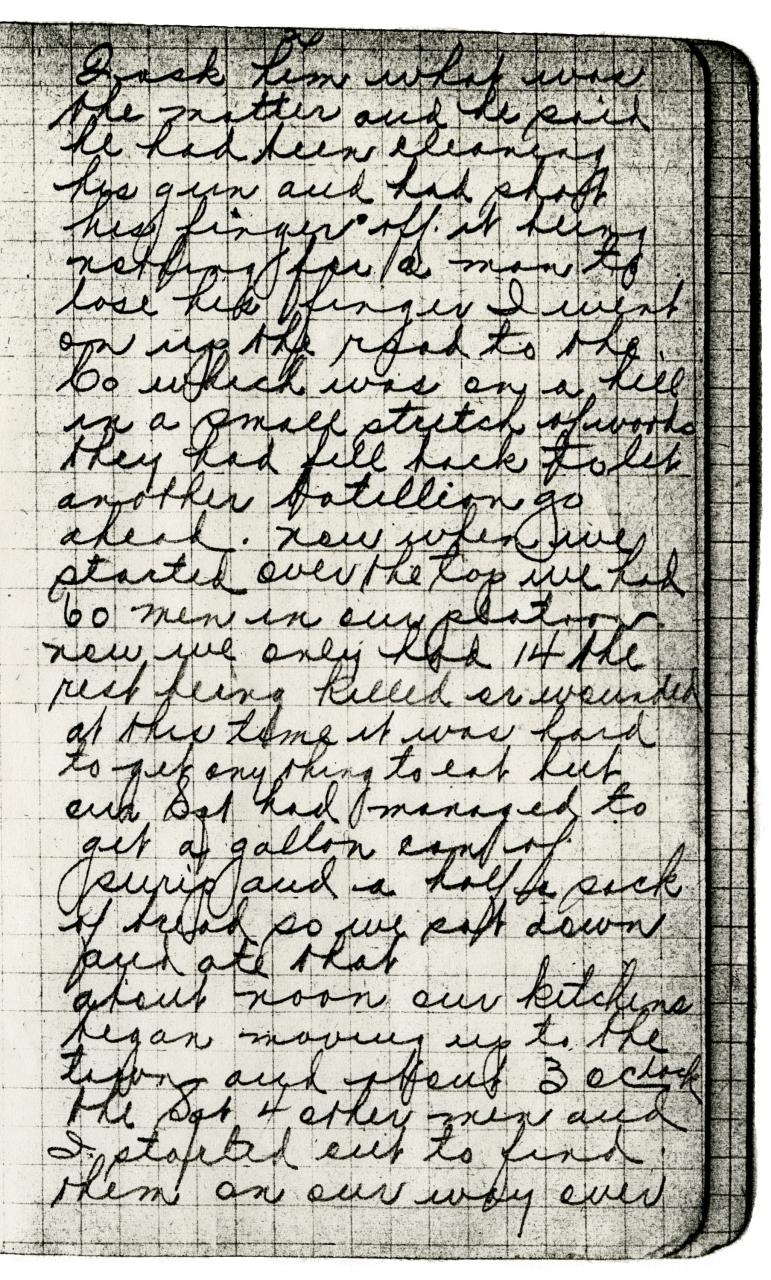 I ask him what was
the matter and he said
he had been cleaning
his gun and had shot
his finger off. it being
nothing for a man to
lose his finger I went
on up the road to the
Co which was on a hill
in a small stretch of woods
they had fell back to let
another batillion go
ahead. now when we
started over the top we had
60 men in our platoon
now we only had 14 the
rest being killed or wounded
at this time it was hard
to get any thing to eat but
our Sgt had managed to
get a gallon can of
surip and a half a sack
of bread so we sat down
and ate that
about noon our kitchens
began moving up to the
town and about 3 oclock
the Sgt 4 other men and
I started out to find
them on our way over